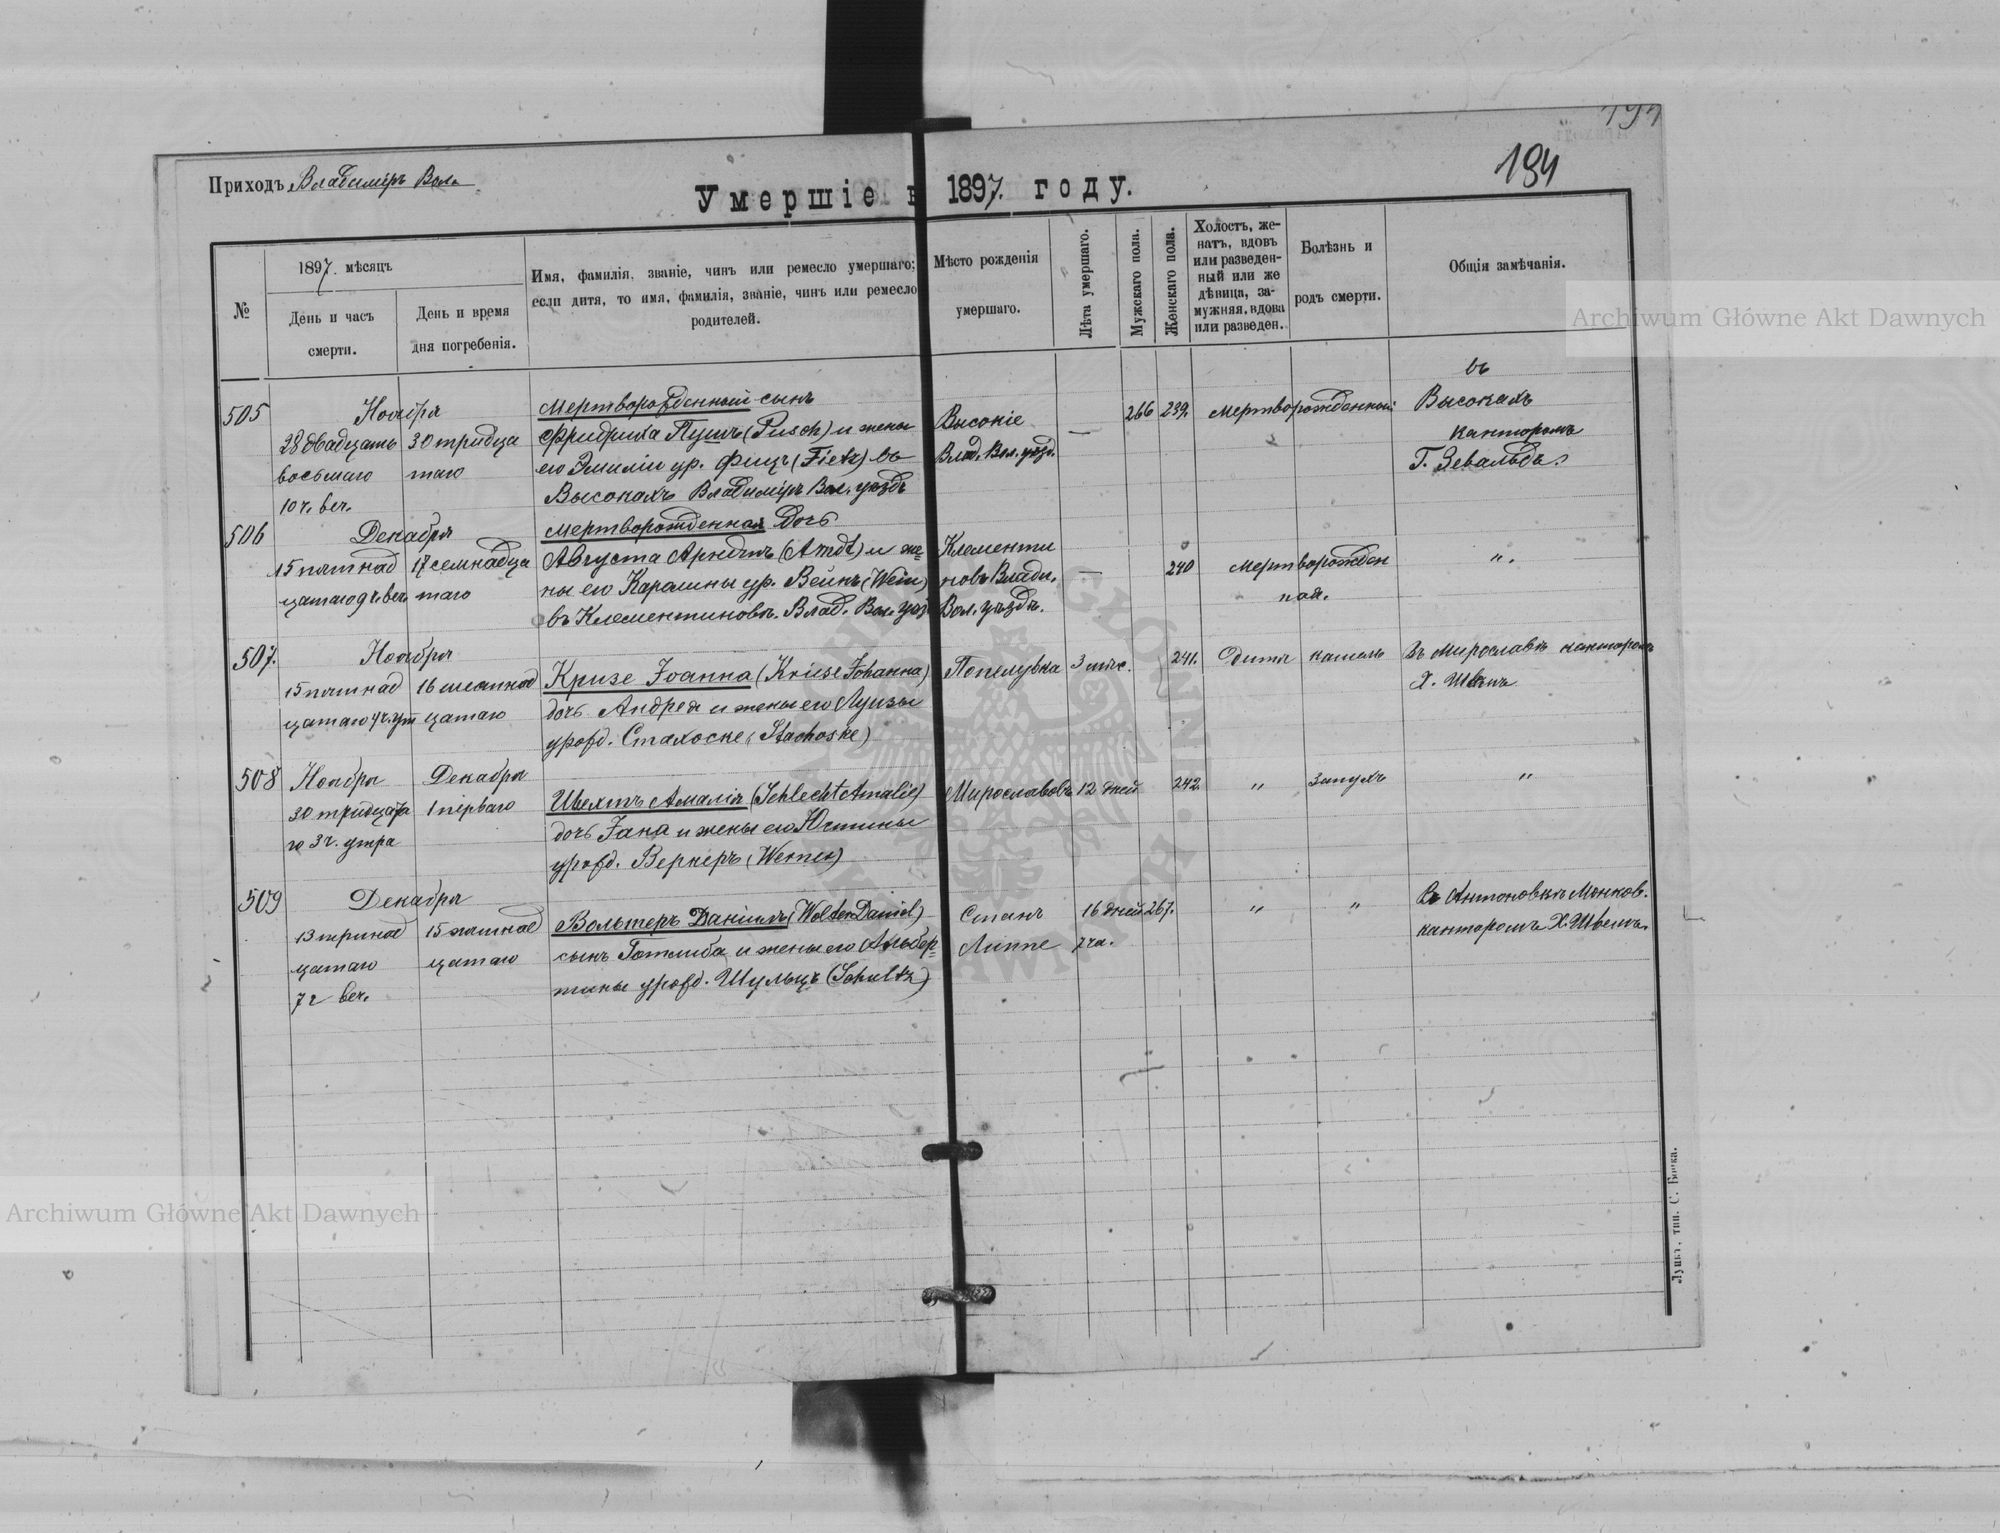 194
Приходъ Владимiръ Вол.
Умершіе в 1897. году.
№
1897. мѣсяцъ
День и часъ
смерти.
День и время
дня погребенія.
Имя, фамилія, званіе, чинъ или ремесло умершаго;
если дитя, то имя, фамилія, званіе, чинъ или ремесло
родителей.
Мѣсто рожденія
умершаго.
Лѣта умершаго.
Мужскаго пола.
Женскаго пола.
Холостъ, же-
натъ, вдовъ
или разведен-
ный или же
дѣвица, за-
мужняя, вдова
или разведен.
Болѣзнь и
родъ смерти.
Общія замѣчанія.
505
Ноября
28 двадцать
восьмаго
10 ч. веч.
30 тридца
таго
Мертворожденный сынъ
Фридриха Пушъ (Pusch) и жены
его Эмиліи ур. Фицъ (Fietz) въ
Высокахъ Владиміръ Вол. уѣздѣ
Высокіе
Влад. Вол. уѣзд.
—
266 239.
Мертворожденный
въ
Высокахъ
канторомъ
Г. Зевальдъ.
506
Декабря
15 пятнад
цатаго 9 ч. веч.
17 семнадца
таго
Мертворожденная дочь
Августа Арндтъ (Arndt) и же-
ны его Каралины ур. Вейнъ (Wein)
въ Клементиновѣ. Влад. Вол. уѣз
Клементи
новъ Влади.
Вол. уѣздѣ.
—
240
Мертворожден
ная.
"
507.
Ноября
15 пятнад
цатаго 4 ч. ут
16 шестнад
цатаго
Кризе Іоанна (Kriese Johanna)
дочь Андрея и жены его Луизы
урожд. Стахоске (Stachoske)
Попелувка
3 мѣс.
241.
Дитя
кашель
Въ Мирославкѣ канторомъ
Х.
508
Ноября
30 тридцата
го 3 ч. утра
Декабря
1 перваго
Шлехтъ Амалія (Schlecht Amalie)
дочь Яана и жены его Юстины
урожд. Вернеръ (Werner)
Мирославовъ
12 дней
242.
"
запухъ
"
509
Декабря
13 тринад
цатаго
7 ч веч.
15 пятнад
цатаго
Вольтеръ Даніилъ (Wolter Daniel)
сынъ Готлиба и жены его Альбер-
тины урожд. Шульцъ (Schultz)
Станъ
Липпе
16 дней
7 ча.
267.
"
"
Въ Антоновкѣ Маньков.
канторомъ Х.
Луцкъ, тип. С. Бонка.
Archiwum Główne Akt Dawnych
Archiwum Główne Akt Dawnych